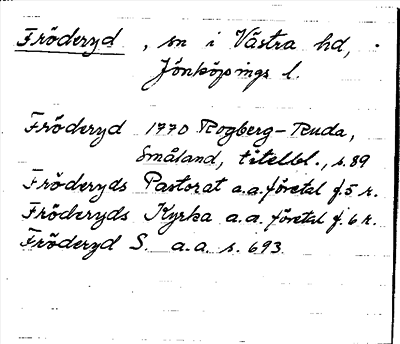 Fröderyd, sn i Västra hd,
Jönköpings l.
Fröderyd 1770 Rogberg-Ruda,
Småland, titelbl., s. 89
Fröderyds Pastorat a.a. företal f. 5 r.
Fröderyds Kyrka a.a. företal f. 6 r.
Fröderyd S. a.a. s. 693.